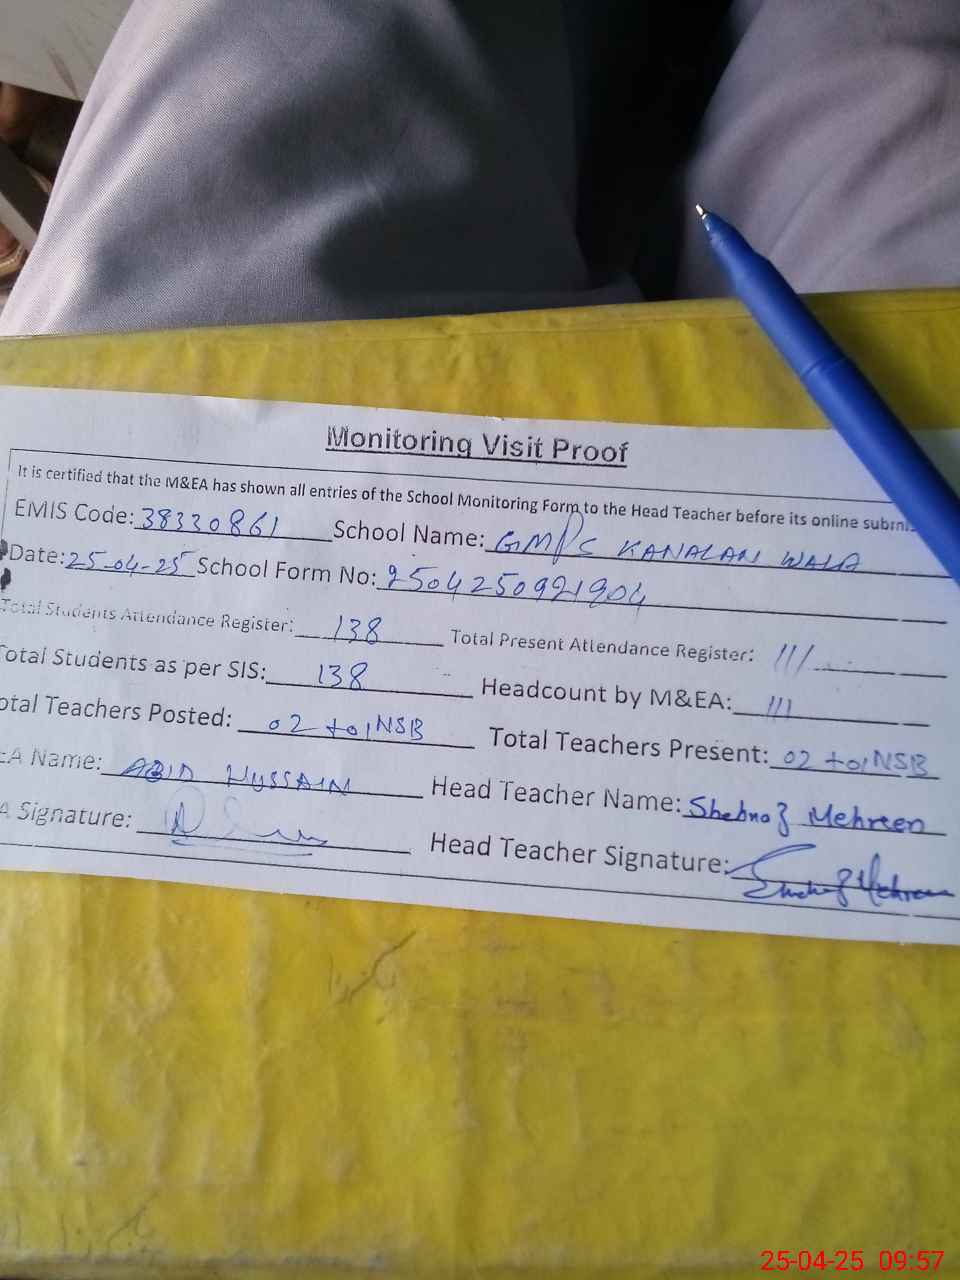 Monitoring Visit Proof
It is certified that the M&EA has shown all entries of the School Monitoring Form to the Head Teacher before its online submi
EMIS Code: 38330861 School Name: GMPS KANALAN WALA
Date: 25-04-25 School Form No: 2504250921904
Total Students Attendance Register: 138 Total Present Attendance Register: 111
Total Students as per SIS: 138 Headcount by M&EA: 111
otal Teachers Posted: 02 +01NSB Total Teachers Present: 02 +01NSB
EA Name: ABID HUSSAIN Head Teacher Name: Shebnaz Mehreen
A Signature: Head Teacher Signature:
25-04-25 09:57